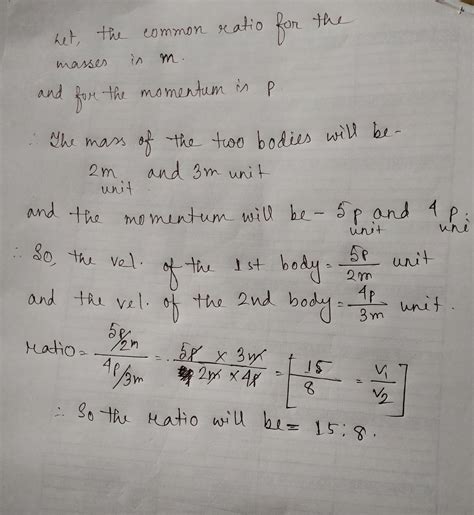 Let, the common ratio for the
masses is m.
and for the momentum is p
∴ The mass of the two bodies will be-
2m unit and 3m unit
and the momentum will be - 5p unit and 4p
∴ So, the vel. of the 1st body = 5p/2m unit
and the vel. of the 2nd body = 4p/3m unit.
ratio = (5p/2m)/(4p/3m) = (5p × 3m)/(2m × 4p) = [15/8 = v₁/v₂]
∴ So the ratio will be = 15:8.